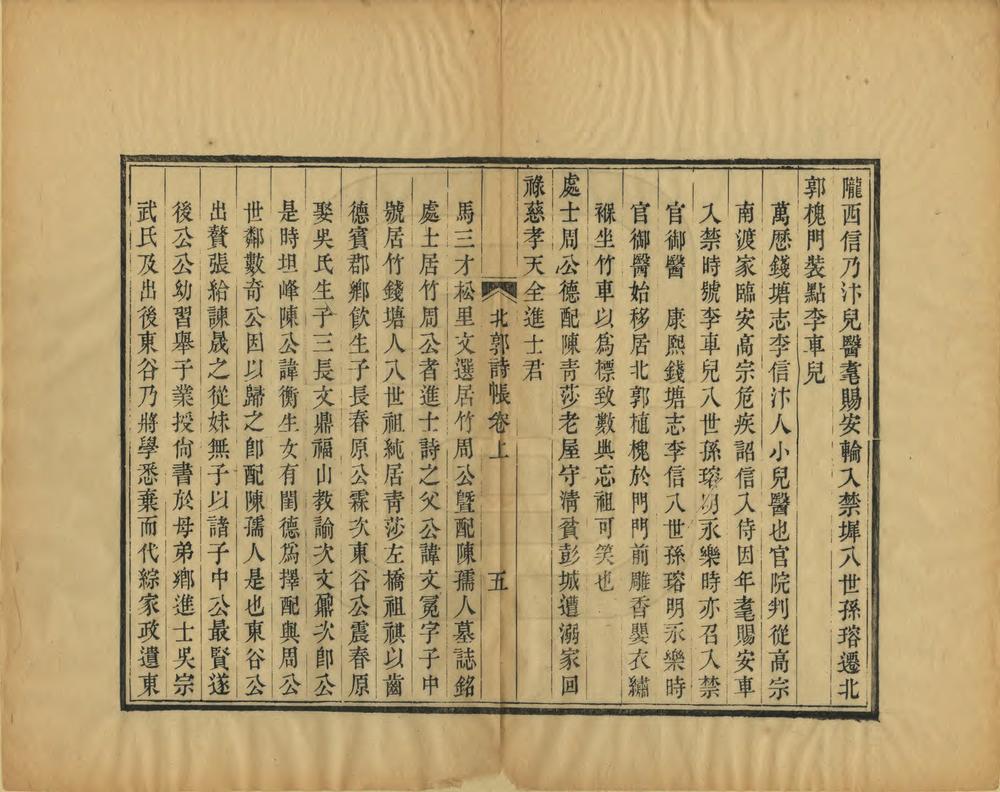 隴西信乃汴兒醫耄賜安輪入禁墀八世孫瑢遷北
郭槐門裝點李車兒
萬厯錢塘志李信汴人小兒醫也官院判從高宗
南渡家臨安高宗危疾詔信入侍因年耄賜安車
入禁時號李車兒八世孫瑢明永樂時亦召入禁
官御醫　康熙錢塘志李信八世孫瑢明永樂時
官御醫始移居北郭植槐於門門前雕香嬰衣繡
褓坐竹車以爲標致數典忘祖可笑也
處士周公德配陳靑莎老屋守淸貧彭城遭溺家回
祿慈孝天全進士君
北郭詩帳卷上　五
馬三才松里文選居竹周公曁配陳孺人墓誌銘
處士居竹周公者進士詩之父公諱文冕字子中
號居竹錢塘人八世祖純居靑莎左橋祖祺以齒
德賓郡鄕飮生子長春原公霖次東谷公震春原
娶吳氏生子三長文鼎福山敎諭次文鼐次卽公
是時坦峰陳公諱衡生女有閨德爲擇配與周公
世鄰數奇公因以歸之卽配陳孺人是也東谷公
出贅張給諫晟之從妹無子以諸子中公最賢遂
後公公幼習舉子業授尙書於母弟鄕進士吳宗
武氏及出後東谷乃將學悉棄而代綜家政遣東